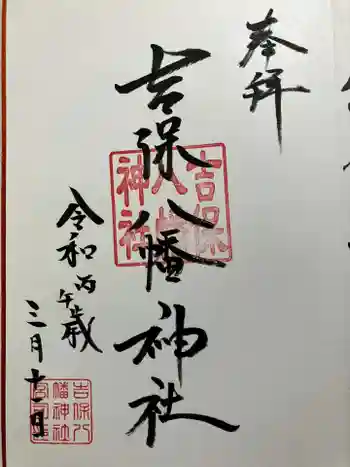 奉拝
吉保八幡神社
吉保八幡神社
令和丙午歳
三月十一日
吉保八幡神社